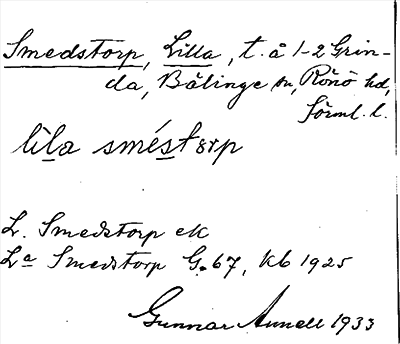 Smedstorp, Lilla, t. å 1-2 Grin-
da, Bälinge sn, Rönö hd,
Sörml. l.
lìla sméstorp
L. Smedstorp ek
La Smedstorp G. 67, kb 1925
Gunnar Annell 1933